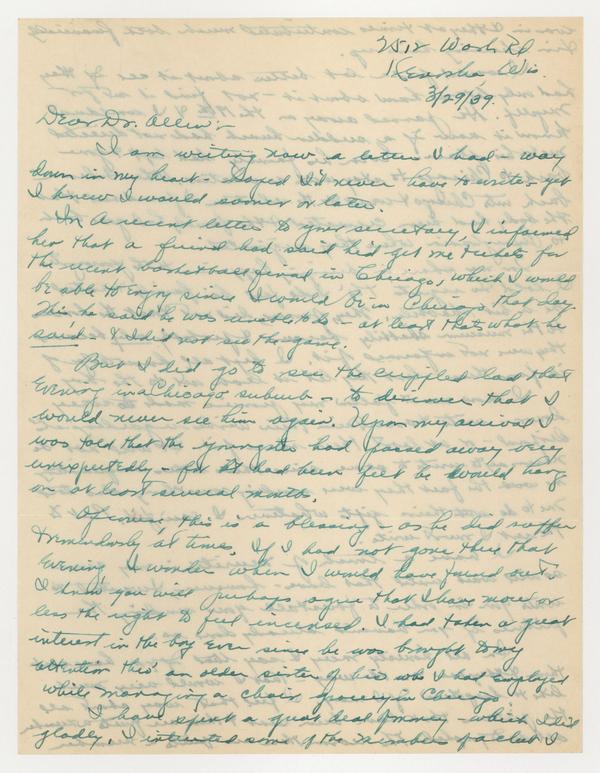 2518 Wash Rd
Kenosha, Wis.
3/29/39.
Dear Dr. Allen:-
I am writing now a letter I had - way
down in my heart - hoped I'd never have to write - yet
I knew I would sooner or later.
In a recent letter to your secretary, I informed
her that a friend had said he'd get me tickets for
the recent basketball final in Chicago, which I would
be able to enjoy since I would be in Chicago that day.
This he said he was unable to do - at least that's what he
said - & I did not see the game.
But I did go to see the crippled lad that
evening in a Chicago suburb - to discover that I
would never see him again. Upon my arrival I
was told that the youngster had passed away very
unexpectedly - for it had been felt he would hang
on at least several months.
Of course, this is a blessing - as he did suffer
tremendously at times. If I had not gone there that
evening I wonder when I would have found out.
I know you will perhaps agree that I have more or
less the right to feel incensed. I had taken a great
interest in the boy ever since he was brought to my
attention thro' an older sister of his who I had employed
while managing a chain grocery in Chicago.
I have spent a great deal of money - which I did
gladly. I interested some of the members of a club I